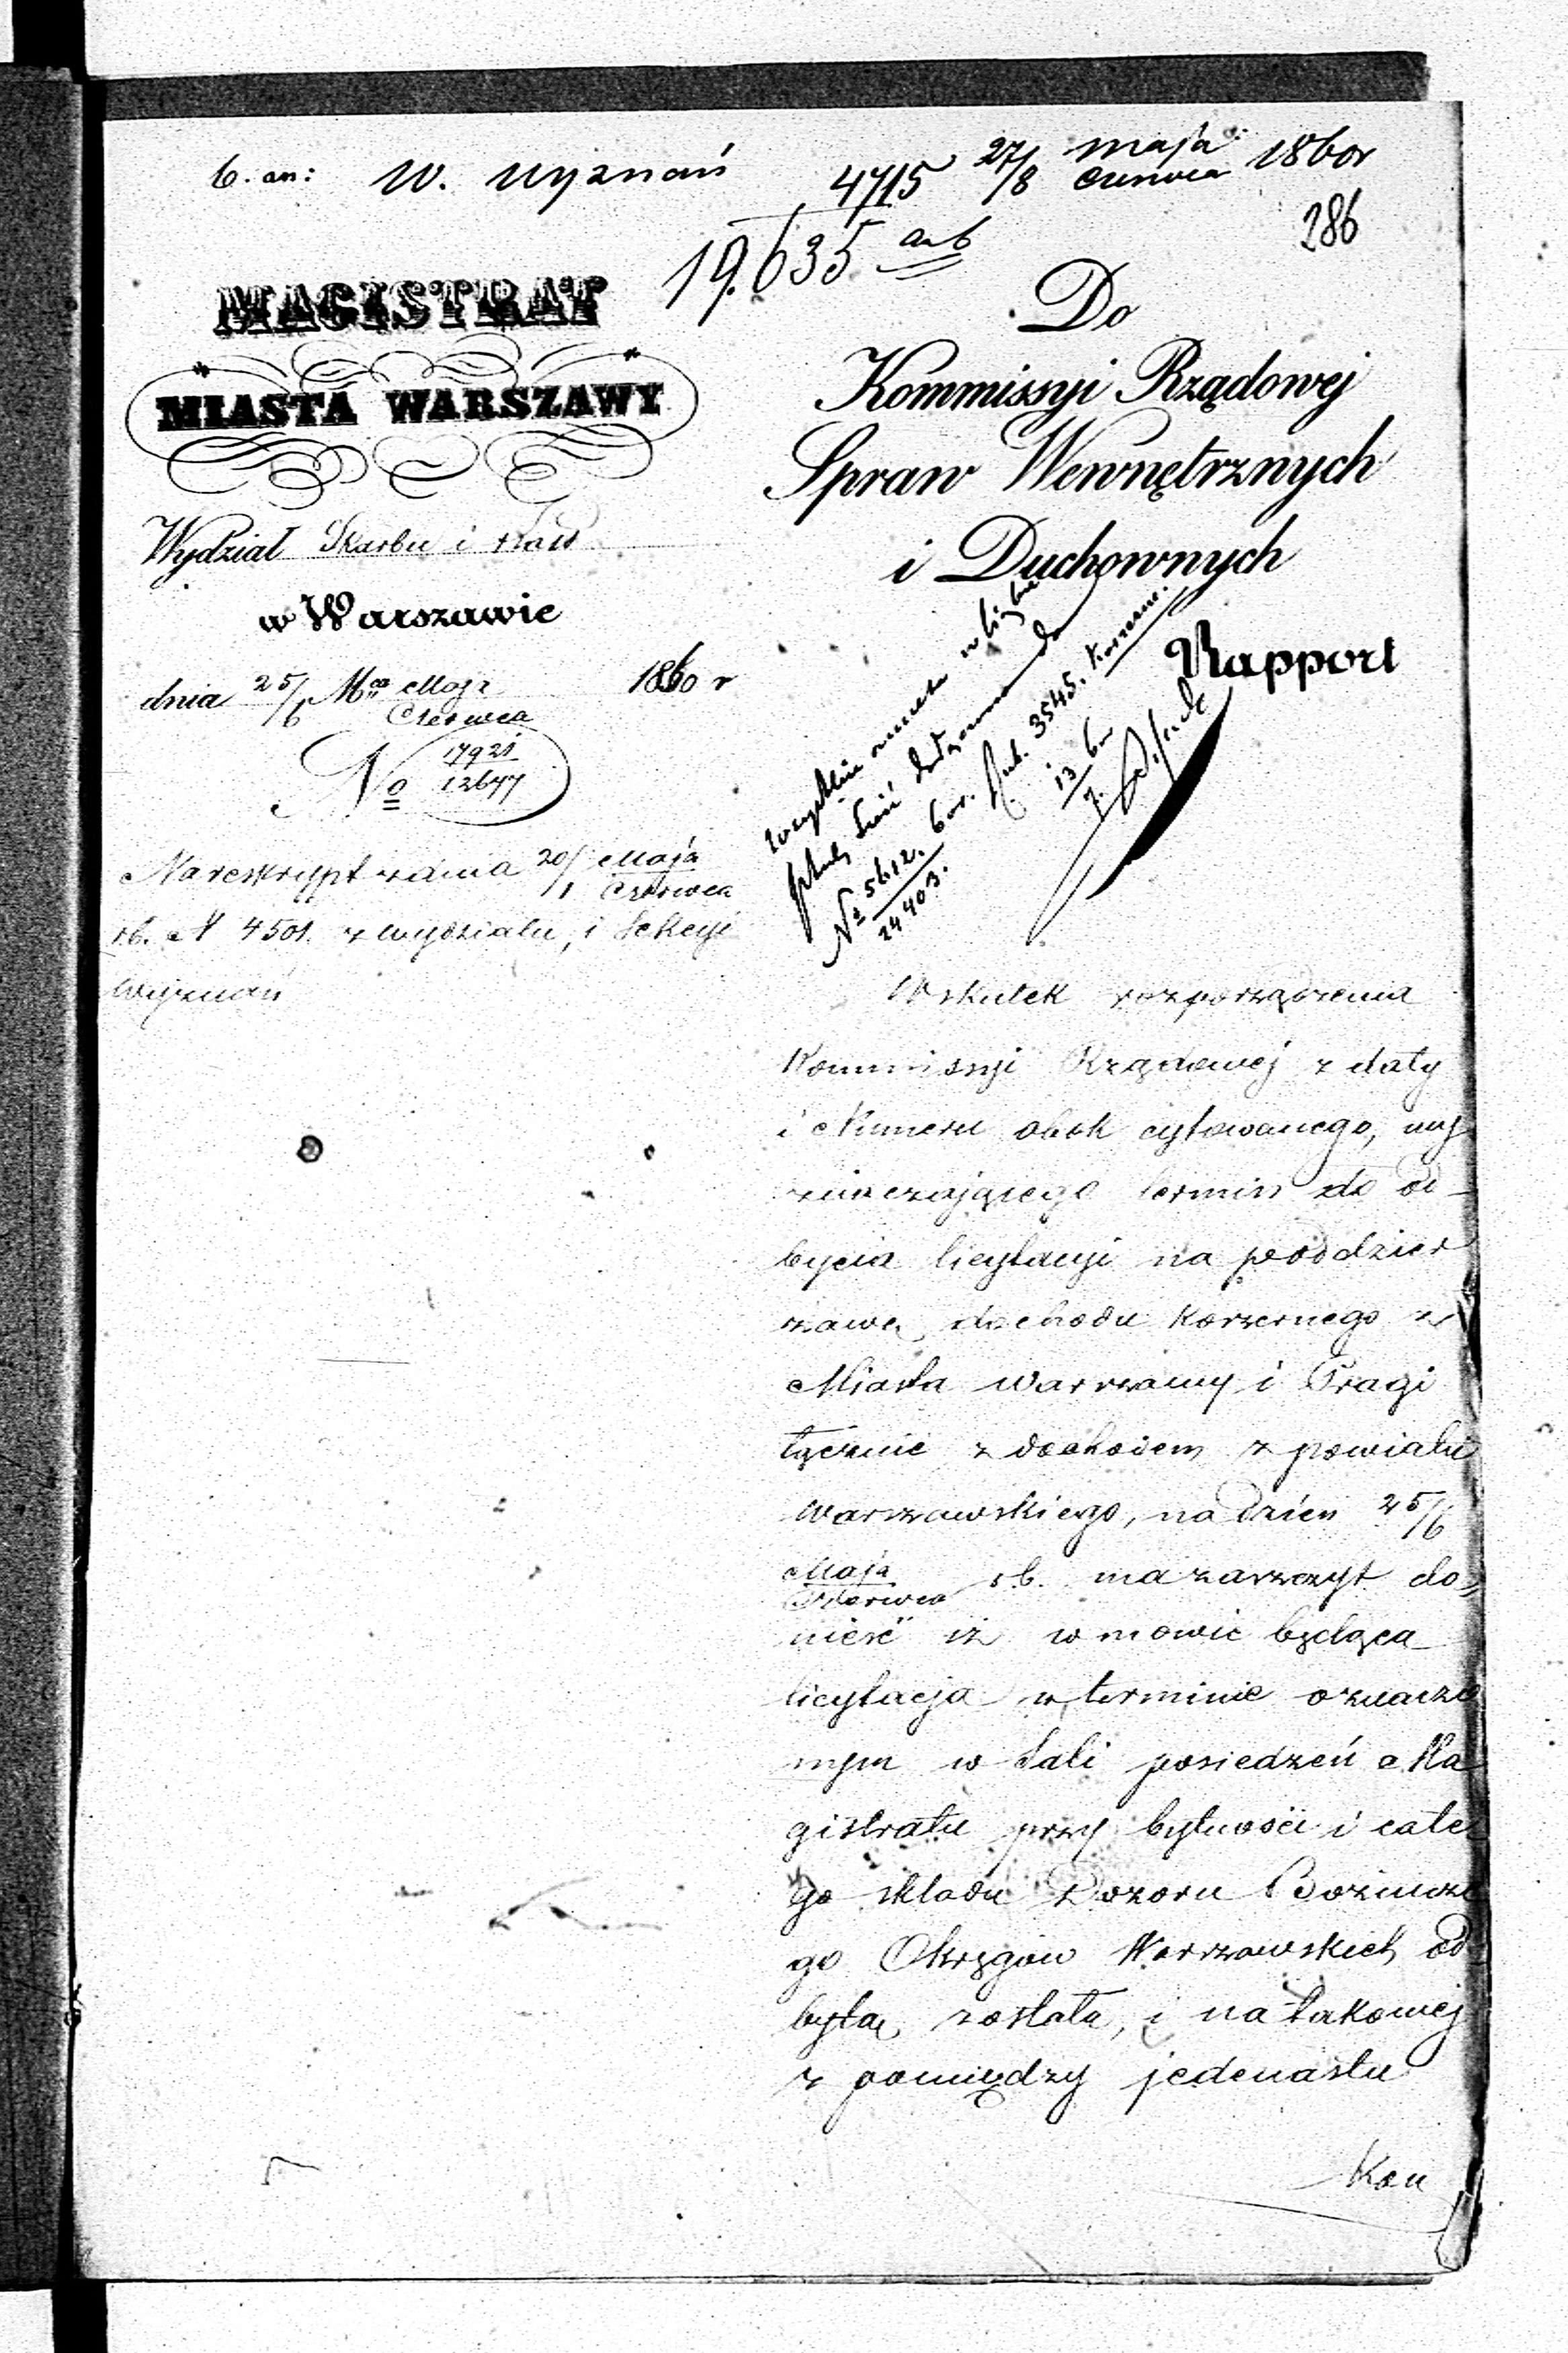 b. an: W. Wyznań 4715 27/8 Maja Czerwca 1860r
286
19.635
MAGISTRAT
MIASTA WARSZAWY
Wydział Skarbu i
w Warszawie
dnia 25/6 Mca Maja Czerwca 1860 r
No 17921
12677
Na reskrypt z dnia 20/1 Maja Czerwca
r.b. N 4501. z wydziału, i Sekcyi
Wyznań
Do
Kommissyi Rządowej
Spraw Wewnętrznych
i Duchownych
Rapport
No 5612. 60r. 3545.
24403.
W skutek rozporządzenia
Kommissyi Rządowej z daty
i Numeru obok cytowanego, wy
znaczającego termin do od-
bycia licytacyi na poddzier
żawę dochodu koszernego z
Miasta Warszawy i Pragi
łącznie z dochodem z powiatu
Warszawskiego, na dzień 25/6
Maja Czerwca r.b. ma zaszczyt do-
nieść iż w mowie będąca
licytacja w terminie oznaczo
nym w Sali posiedzeń Ma
gistratu przy bytności i całe
go składu Dozoru Bożnicze
go Okręgów Warszawskich od
bytą została, i na takowej
z pomiędzy jedenastu
Kon